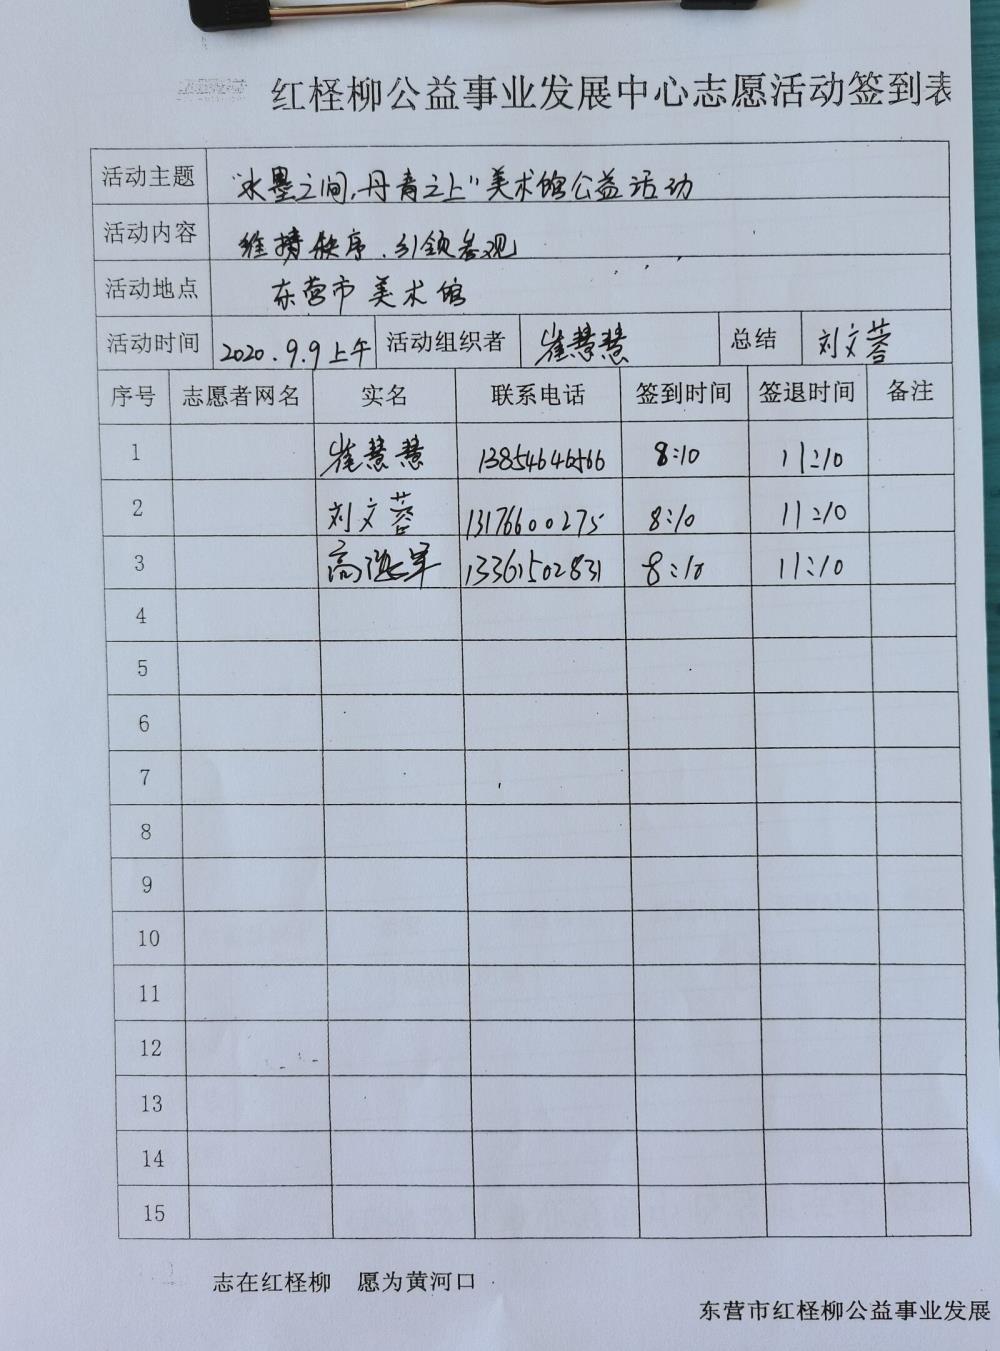 红柽柳公益事业发展中心志愿活动签到表
活动主题 “水墨之间,丹青之上”美术馆公益活动
活动内容 维持秩序、引领参观
活动地点 东营市美术馆
活动时间 2020.9.9上午 活动组织者 崔慧慧 总结 刘文蓉
序号 志愿者网名 实名 联系电话 签到时间 签退时间 备注
1 崔慧慧 13854646566 8:10 11:10
2 刘文蓉 13176600275 8:10 11:10
3 高海军 13361502831 8:10 11:10
4
5
6
7
8
9
10
11
12
13
14
15
志在红柽柳 愿为黄河口
东营市红柽柳公益事业发展